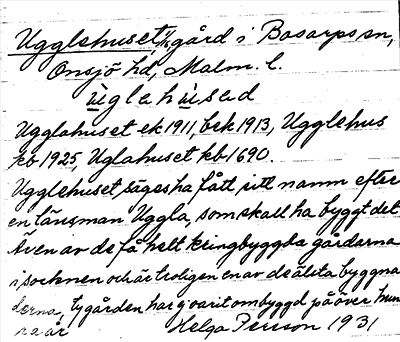 Ugglehuset, 1/16 gård i Bosarps sn,
Onsjö hd, Malm. l.
ùglahùsad
Ugglahuset ek 1911, brk 1913, Ugglehus
kb 1925, Uglahuset kb 1690.
Ugglehuset säges ha fått sitt namn efter
en länsman Uggla, som skall ha byggt det
Även av de få helt kringbyggda gårdarna
i socknen och är troligen en av de äldsta byggna
derna, ty gården har ej varit ombyggd på över hun
ra år Helga Persson 1931